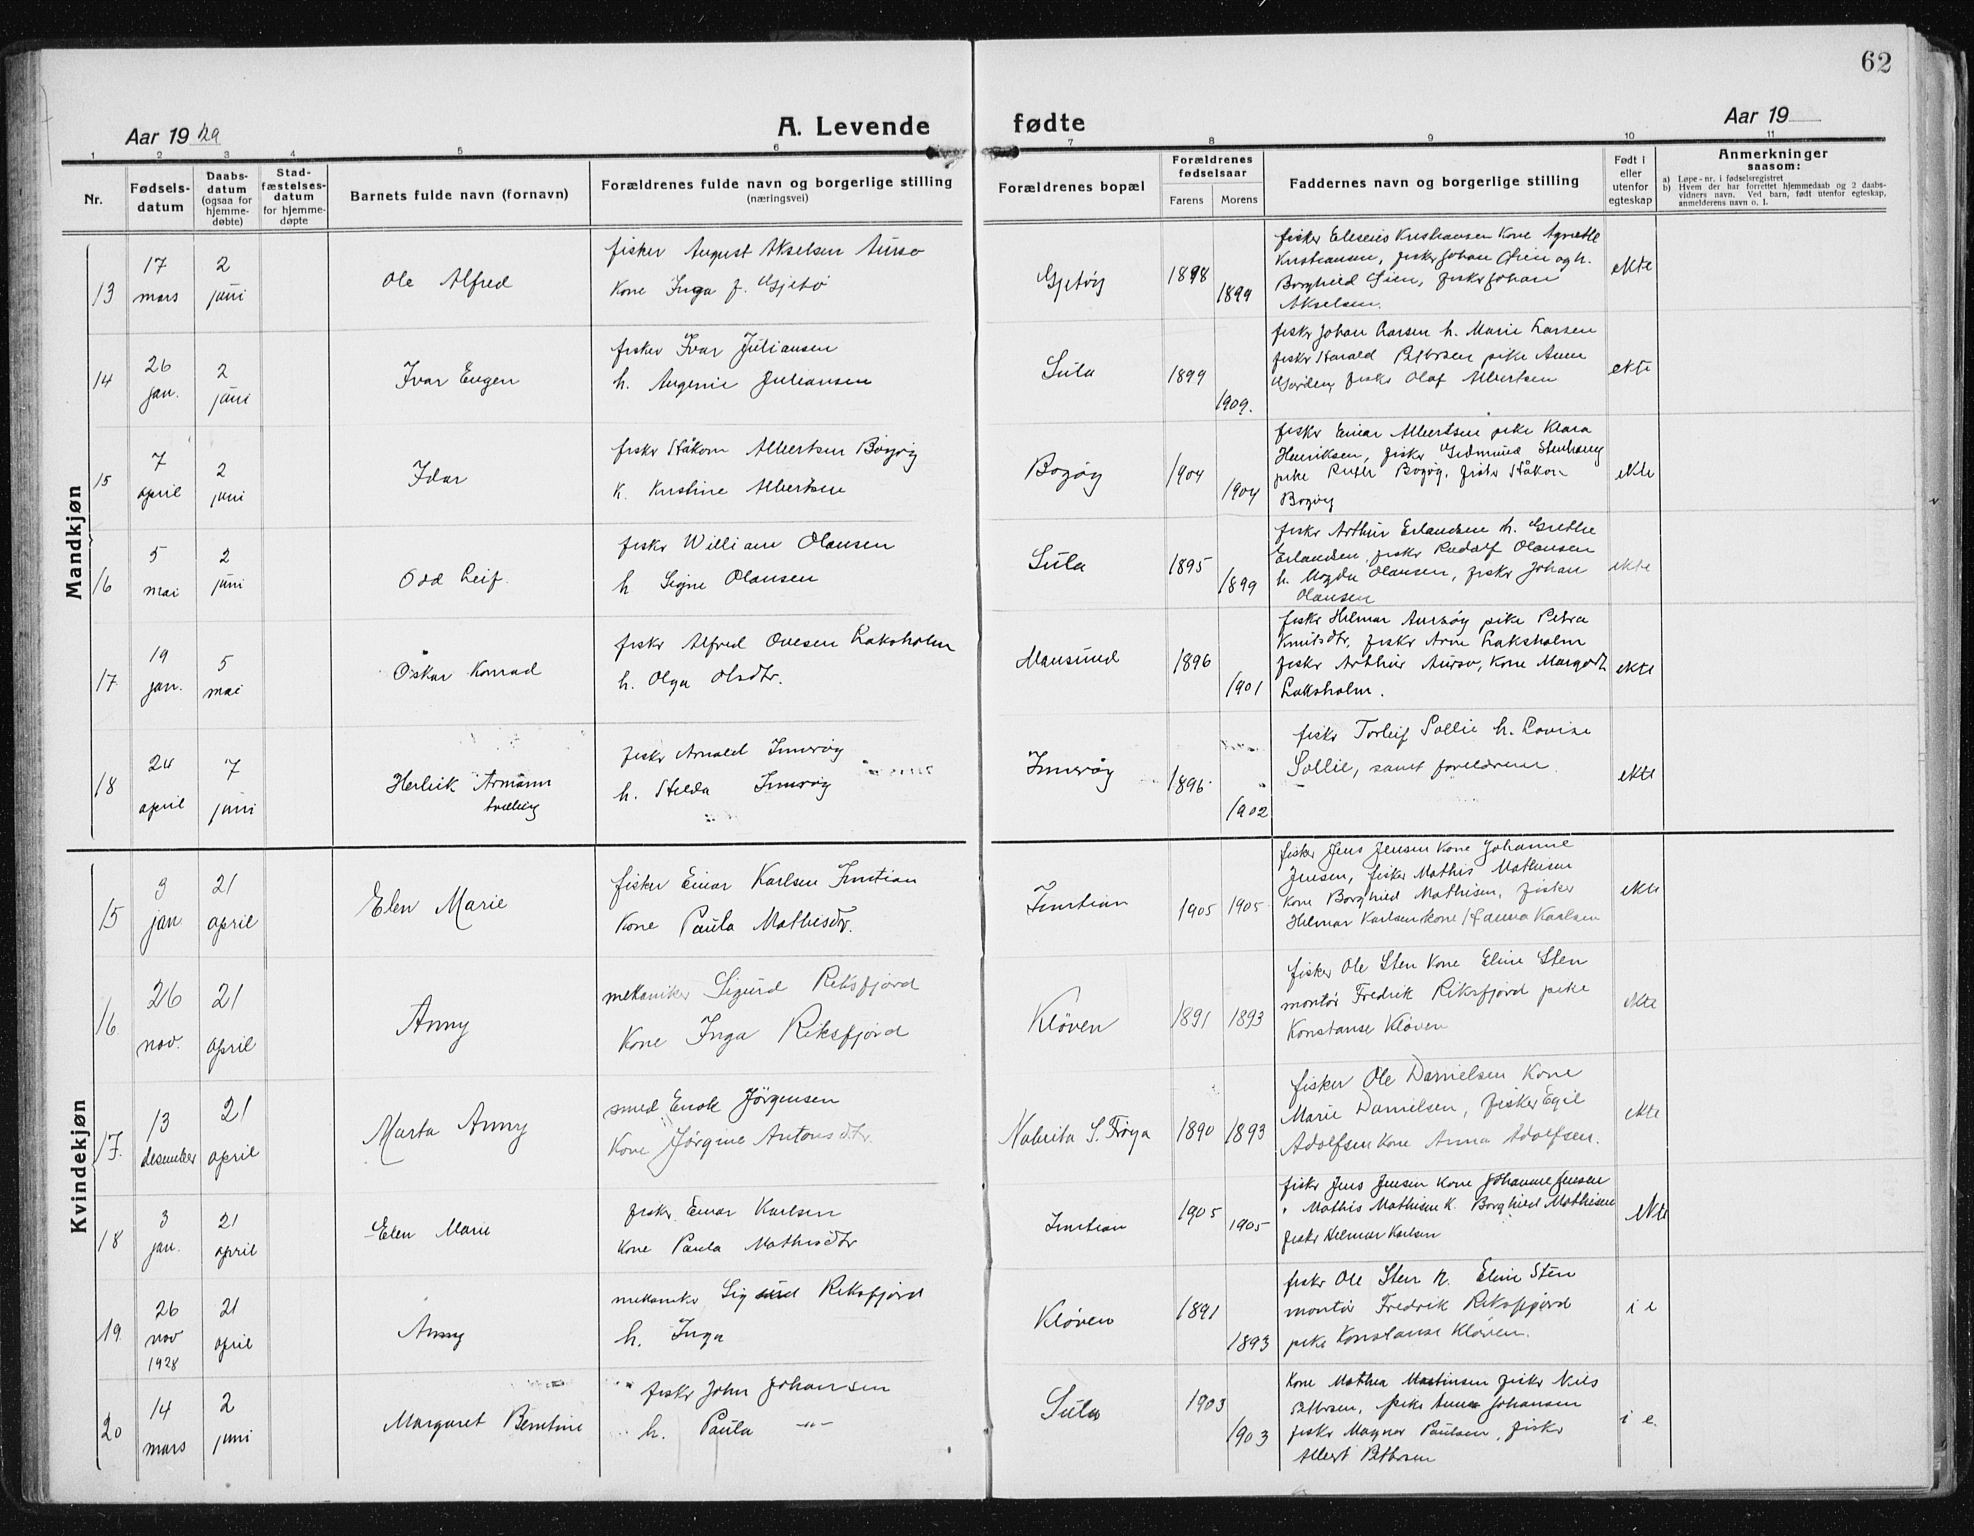 62
Aar 19 29
A. Levende fødte
Aar 19
1 2 3 4 5 6 7 8 9 10 11
Nr.
Fødsels-
datum
Daabs-
datum
(ogsaa for
hjemme-
døbte)
Stad-
fæstelses-
datum
for hjemme-
døpte
Barnets fulde navn (fornavn)
Forældrenes fulde navn og borgerlige stilling
(næringsvei)
Forældrenes bopæl
Forældrenes
fødselsaar
Farens Morens
Faddernes navn og borgerlige stilling
Født i
eller
utenfor
egteskap
Anmerkninger
saasom:
a) Løpe-nr. i fødselsregistret
b) Hvem der har forrettet hjemmedaab og 2 daabs-
vidners navn. Ved barn, født utenfor egteskap,
anmelderens navn o. l.
Mandkjøn
13
17
mars
2
juni
Ole Alfred
fisker August Akselsen Aursø
Kone Inga f. Gjetø
Gjetøy
1898
1899
fisker Eliseus Kristiansen Kone Agnethe
Kristiansen, fisker Johan Gien og h.
Borghild Gien, fisker Johan
Akselsen.
ekte
14
26
jan.
2
juni
Ivar Eugen
fisker Ivar Juliansen
h. Augenie Juliansen
Sula
1899
1909.
fiskr Johan Larsen h. Marie Larsen
fiskr Harald Pettersen pike Anna
fiskr Olaf Albertsen
ekte
15
7
april
2
juni
Ivar
fiskr Håkon Albertsen Bogøy
K. Kristine Albertsen
Bogøy
1904
1904
fiskr Einar Albertsen pike Klara
Henriksen, fiskr Gudmund
pike Ruth Bogøy, fiskr Håkon
Bogøy
ekte
16
5
mai
2
juni
Odd Leif.
fiskr William Olausen
h Signe Olausen
Sula
1895
1899
fiskr Arthur Erlandsen h. Grethe
Erlandsen, fiskr Rudolf Olausen
h. Magda Olausen, fiskr Johan
Olausen
ekte
17.
19
jan.
5
mai
Oskar Konrad
fiskr Alfred Ovesen Laksholm
h. Olga Olsdtr.
Mausund
1896
1901
fiskr Helmar Aursøy pike Petra
Knutsdtr, fiskr Arne Laksholm
fiskr Arthur Aursø, Kone Margret
Laksholm.
ekte
18
24
april
7
juni
Herleik Armann
tvilling
fiskr Arnold Innrøy
h. Hilda Innrøy
Innrøy
1896
1902
fiskr Torleif Sollie h. Lovise
Sollie, samt foreldrene
ekte
Kvindekjøn
15
3
jan
21
april
Elen Marie
fisker Einar Karlsen Inntian
Kone Paula Mathisdtr.
Inntian
1905 1905
fisker Jens Jensen Kone Johanne
Jensen, fisker Mathis Mathisen
Kone Borghild Mathisen, fisker
Helmar Karlsen kone Hanna Karlsen
ekte
16
26
nov.
21
april
Anny
mekaniker Sigurd Riksfjord
Kone Inga Riksfjord
Kløven
1891 1893
fisker Ole Sten Kone Eline Sten
montør Fredrik Riksfjord pike
Konstanse Kløven
ekte
17.
13
desember
21
april
Marta Anny
smed Enok Jørgensen
Kone Jørgine Antonsdtr.
Nabeita S. Frøya
1890 1893
fisker Ole Danielsen Kone
Marie Danielsen, fisker Egil
Adolfsen Kone Anna Adolfsen.
ekte
18
3
jan.
21
april
Elen Marie
fiskr. Einar Karlsen
Kone Paula Mathisdtr
Inntian
1905
1905
fiskr Jens Jensen Kone Johanne Jensen
" Mathis Mathisen K. Borghild Mathisen
fiskr Helmar Karlsen
ekte
19
26
nov
1928
21
april
Anny
mekaniker Sigurd Riksfjord
h. Inga
Kløven
1891
1893
fiskr Ole Sten h. Eline Sten
montør Fredrik Riksfjord
pike Konstanse Kløven.
i e
20
14
mars
2
juni
Margaret Berntine
fiskr John Johansen
h. Paula —"—
Sula
1903
1903
Kone Mathea Martinsen fiskr Nils
Pettersen, pike Anna Johansen
fiskr Magnar Paulsen, fiskr
Albert Pettersen
i e.